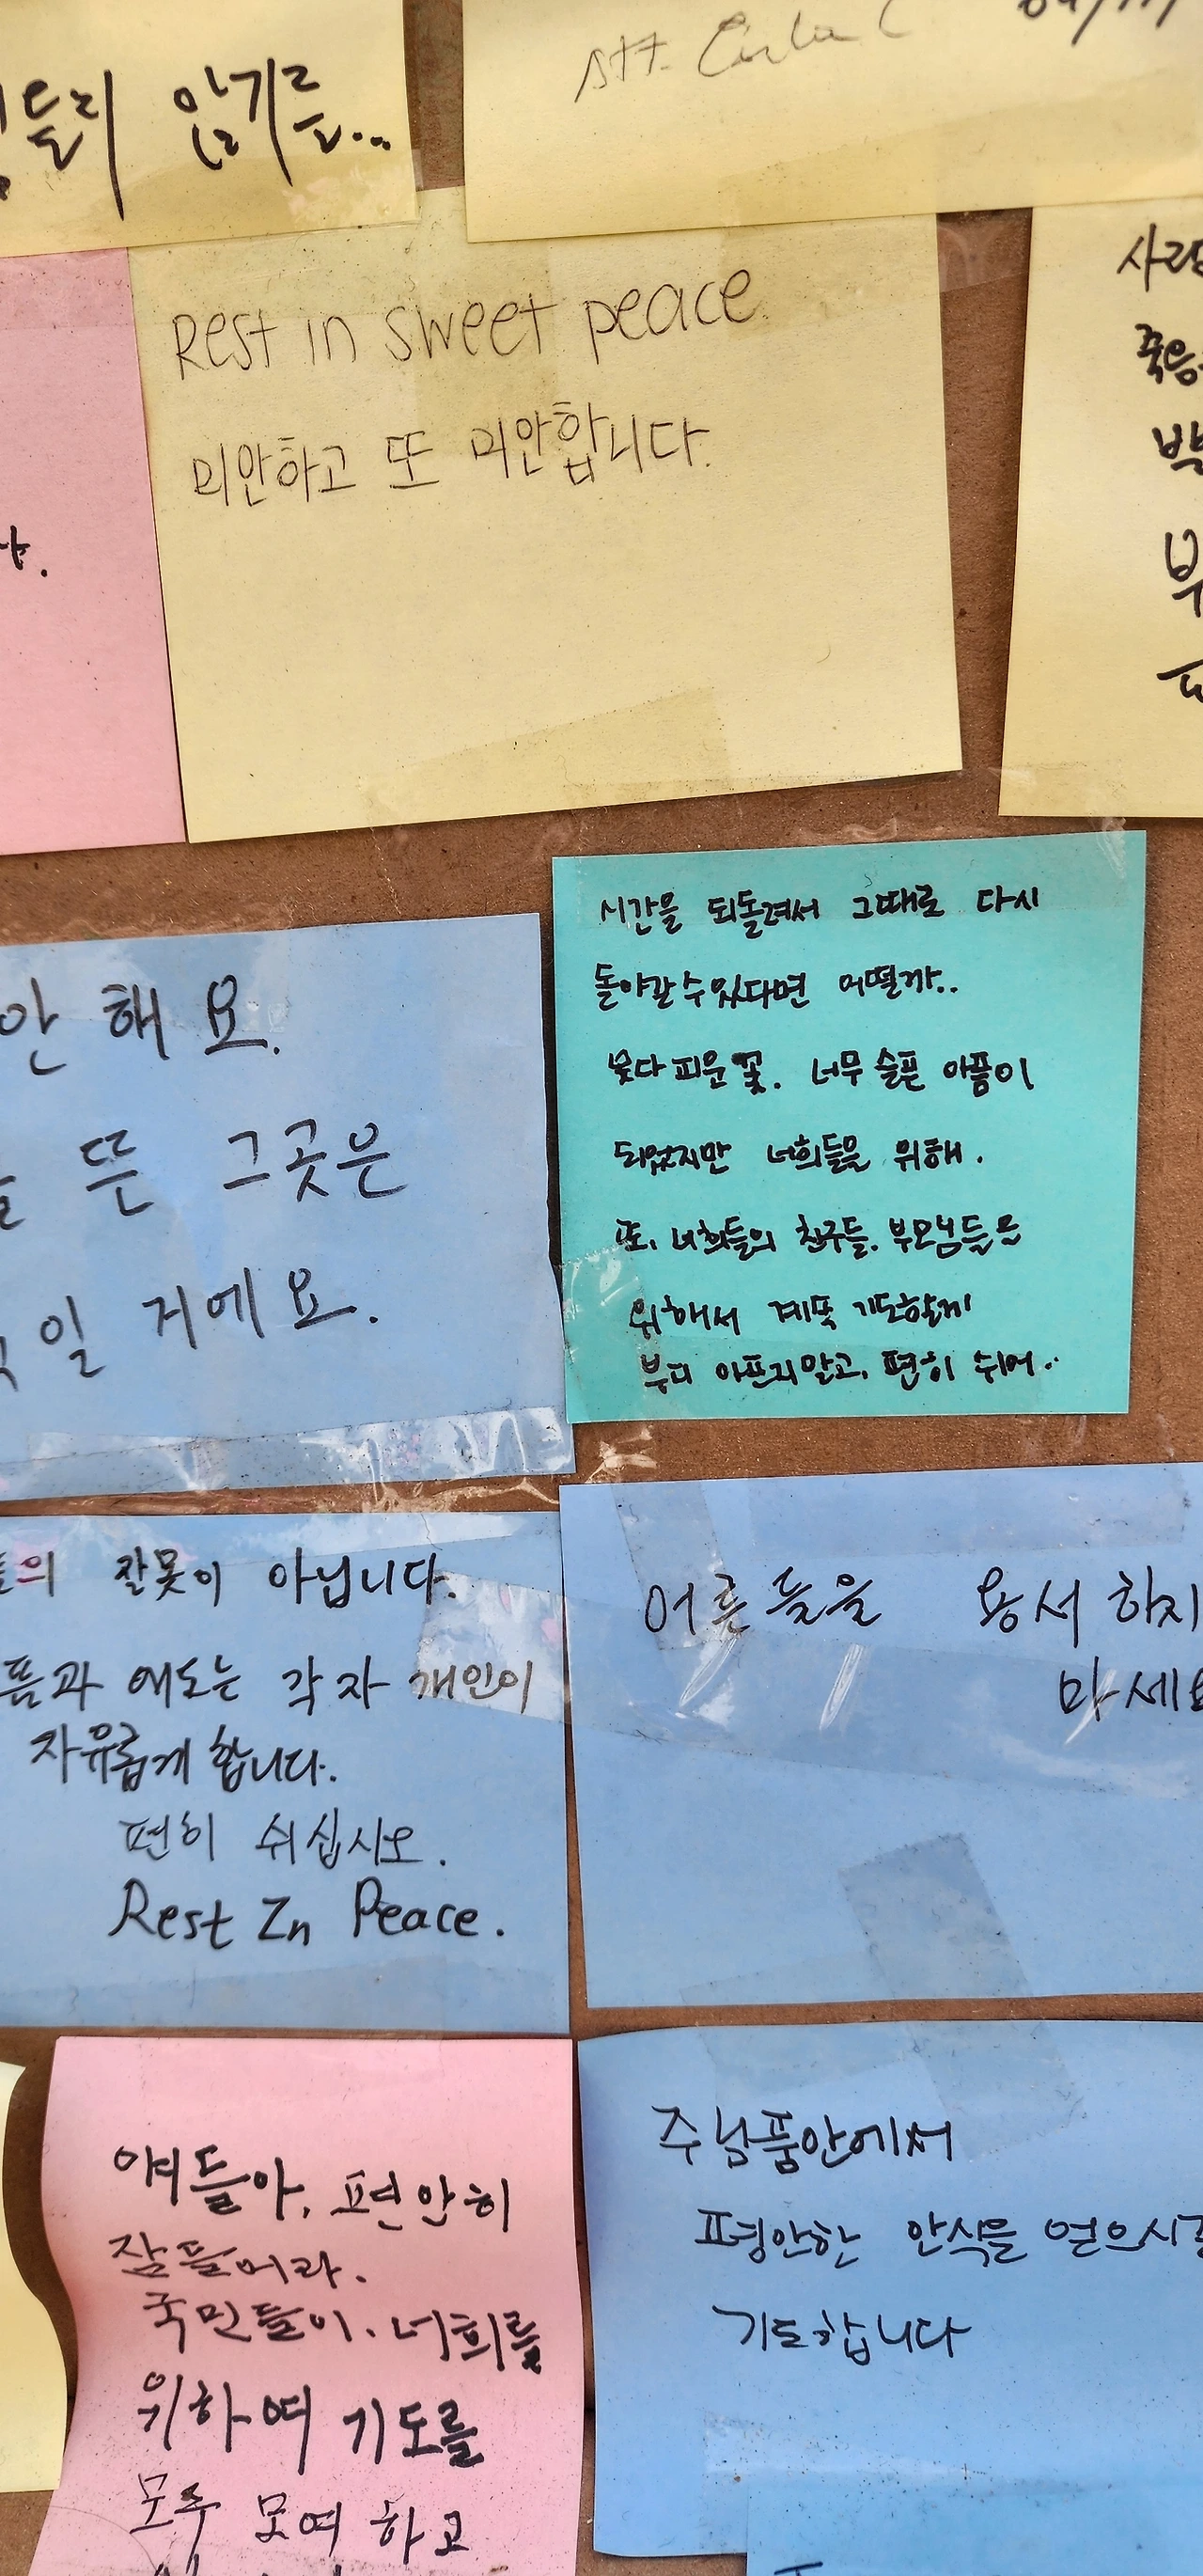 들리 않기를...
Rest in sweet peace
미안하고 또 미안합니다.
시간을 되돌려서 그때로 다시
돌아갈 수 있다면 어떨까..
못다 피운 꽃. 너무 슬픈 아픔이
되었지만 너희들을 위해.
또, 너희들의 친구들, 부모님들을
위해서 계속 기도할게
부디 아프지말고, 편히 쉬어..
안 해 요.
뜬 그곳은
일 거에요.
의 잘못이 아닙니다.
픔과 애도는 각자 개인이
자유롭게 합니다.
편히 쉬십시오.
Rest In Peace.
어른들을 용서 하지
마세요
얘들아, 편안히
잠들어라.
국민들이. 너희를
위하여 기도를
모두 모여 하고
주님품안에서
평안한 안식을 얻으시길
기도합니다